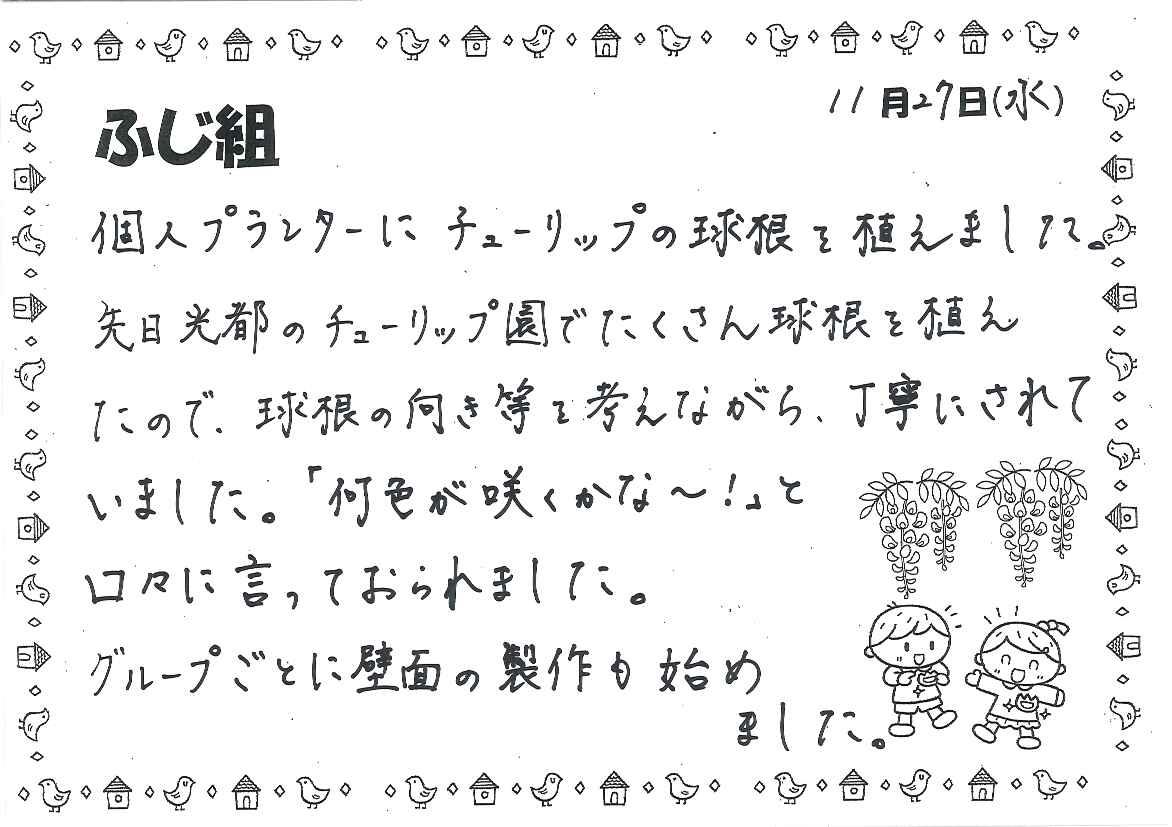 11月27日(水)
ふじ組
個人プランターにチューリップの球根を植えました。
先日光都のチューリップ園でたくさん球根を植え
たので、球根の向き等を考えながら、丁寧にされて
いました。「何色が咲くかな〜!」と
口々に言っておられました。
グループごとに壁面の製作も始め
ました。